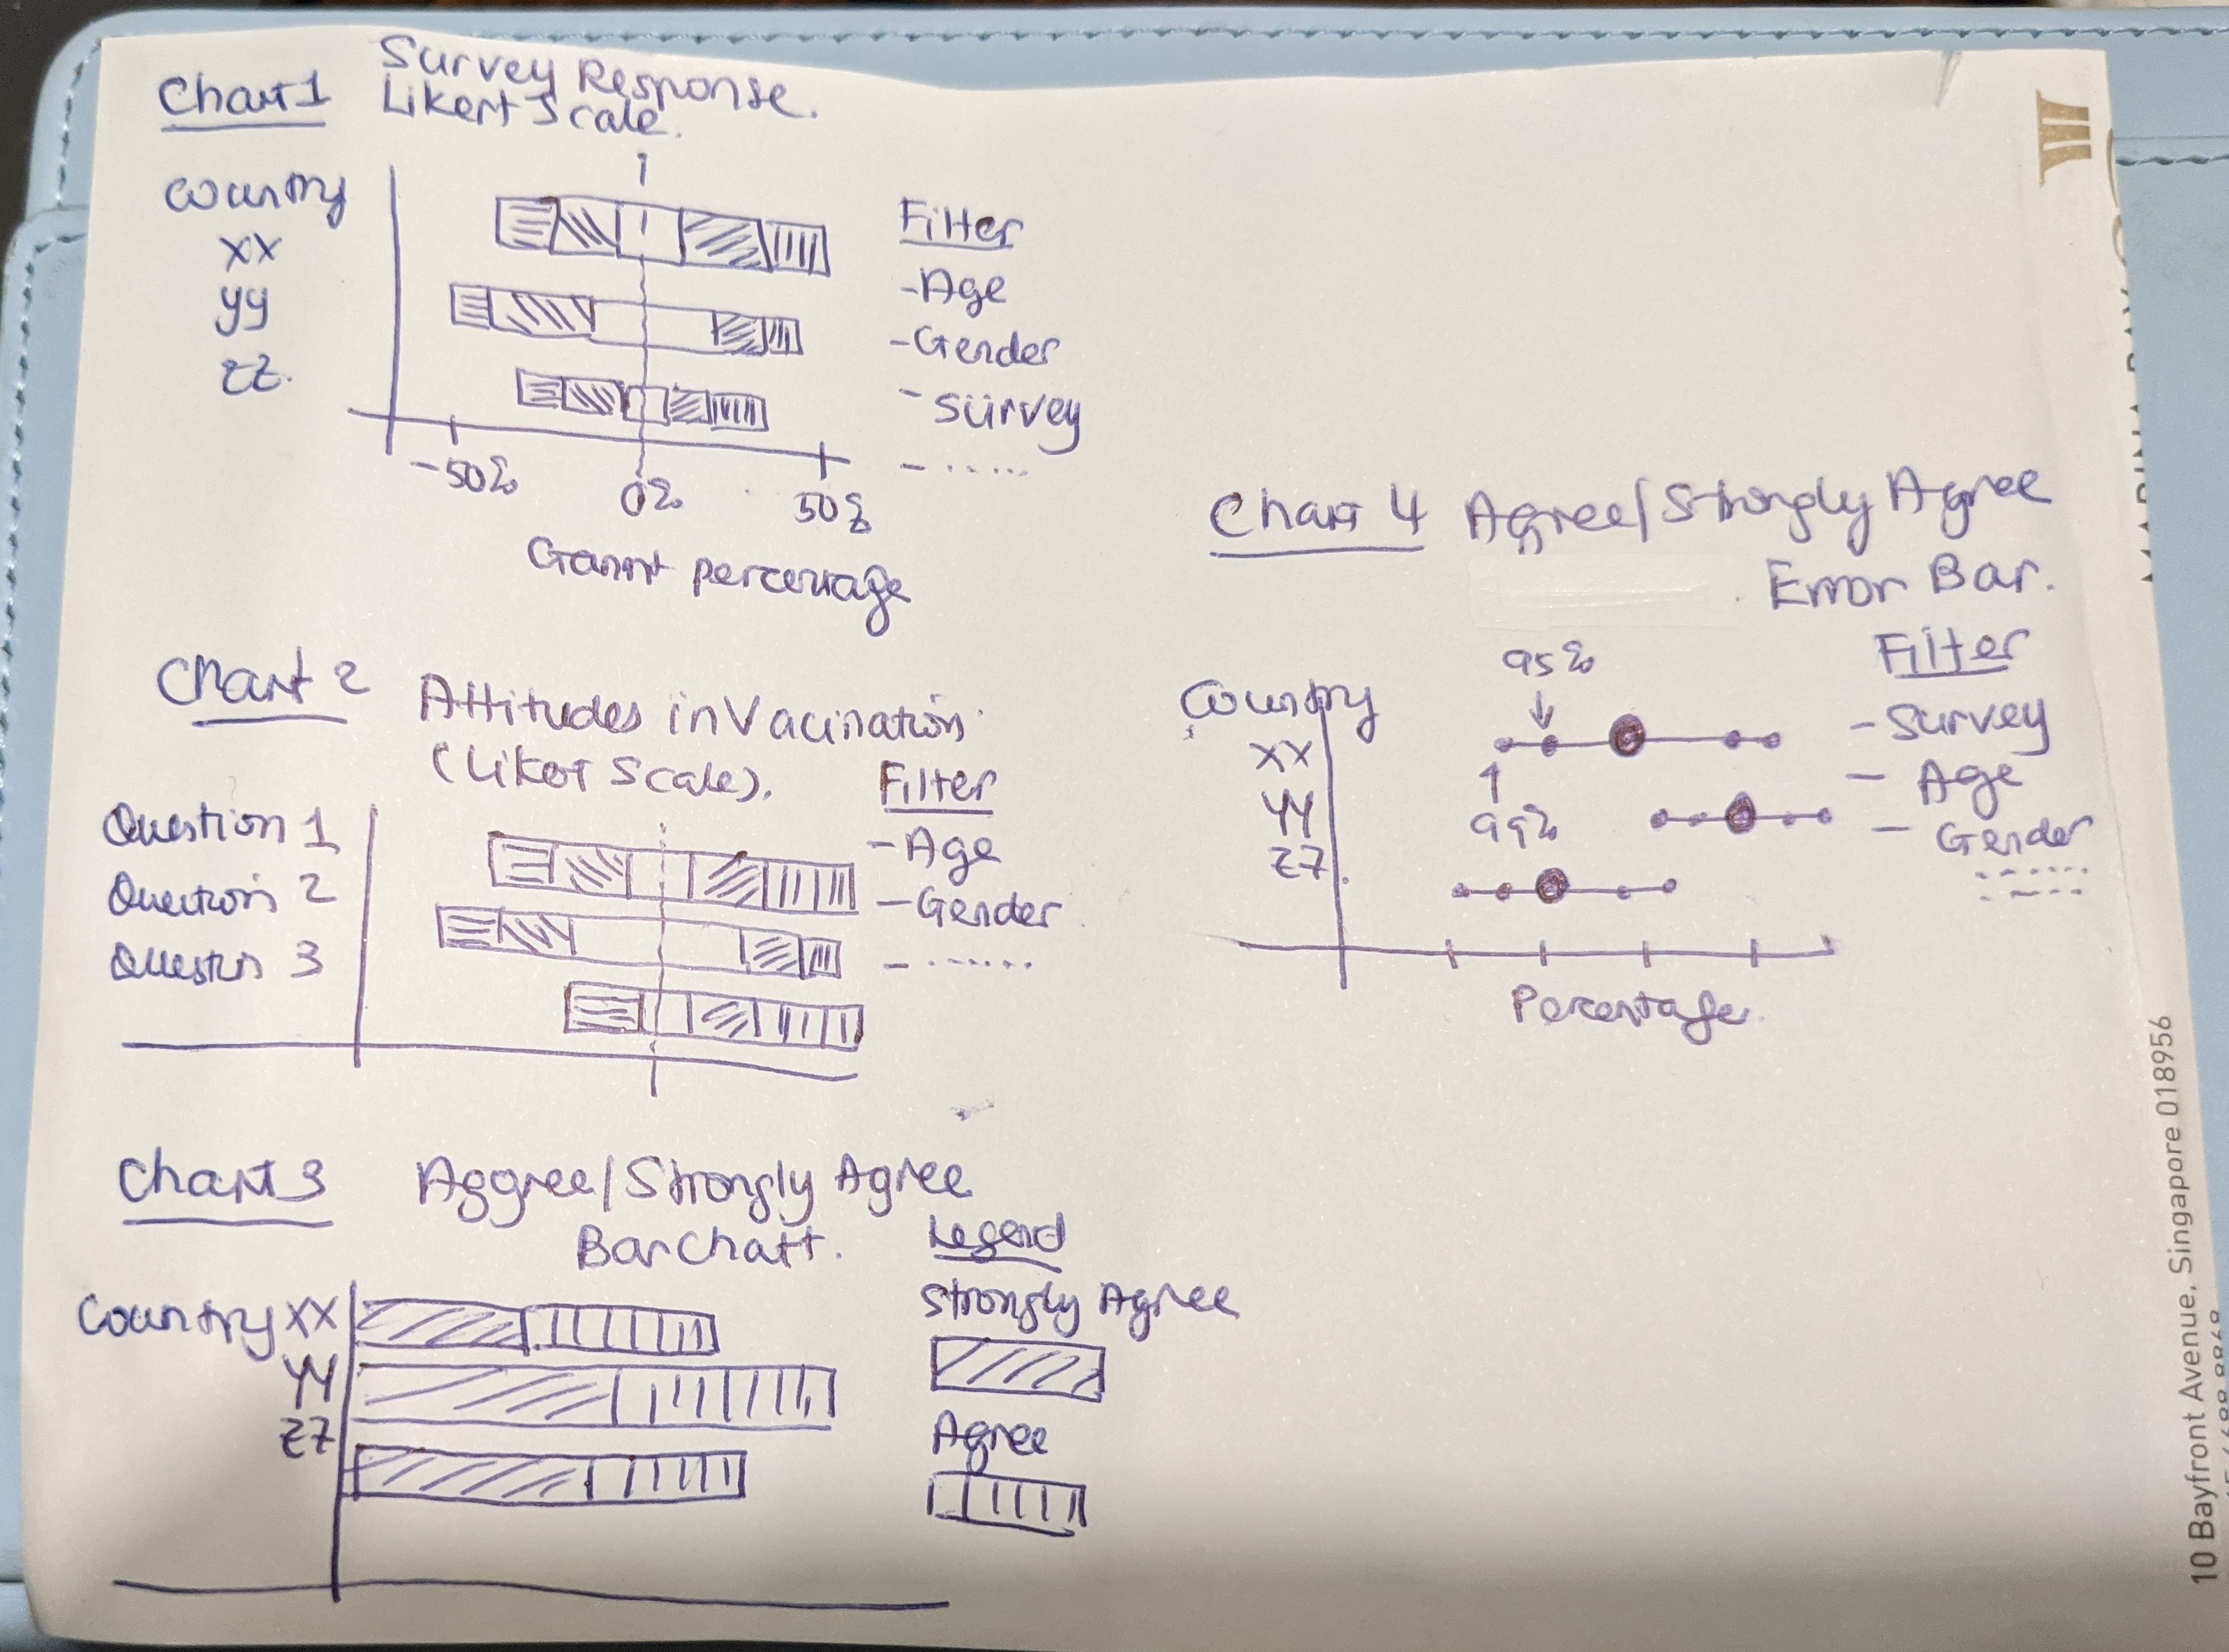 Chart 1 Survey Response.
Likert Scale.
Country
XX
yy
ZZ.
-50% 0% 50%
Gannt percentage
Filter
-Age
-Gender
- Survey
- ......
Chart 2 Attitudes in Vacination
(Likot Scale).
Filter
-Age
-Gender
- ......
Question 1
Question 2
Question 3
Chart 3 Aggree/Strongly Agree
Bar Chart.
Legend
Strongly Agree
Agree
Country XX
YY
ZZ
Chart 4 Agree/Strongly Agree
Error Bar.
Filter
- Survey
- Age
- Gender
95%
Country
XX
YY
99%
ZZ.
Percentage.
10 Bayfront Avenue, Singapore 018956